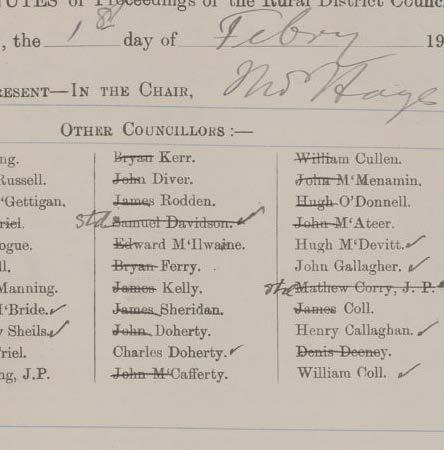 NUTES of Proceedings of the Rural District Counc
, the 1st day of Febry 19
RESENT—IN THE CHAIR, Mr Hayes
OTHER COUNCILLORS :—
ng.
Russell.
'Gettigan,
riel.
ogue.
ll.
Manning.
I'Bride.
y Sheils
Friel.
ng, J.P.
Bryan Kerr.
John Diver.
James Rodden.
Std Samuel Davidson.
Edward M'Ilwaine.
Bryan Ferry.
James Kelly.
James Sheridan.
John Doherty.
Charles Doherty.
John M'Cafferty.
William Cullen.
John M'Menamin.
Hugh O'Donnell.
John M'Ateer.
Hugh M'Devitt.
John Gallagher.
Std Mathew Corry, J. P.
James Coll.
Henry Callaghan.
Denis Deeney.
William Coll.